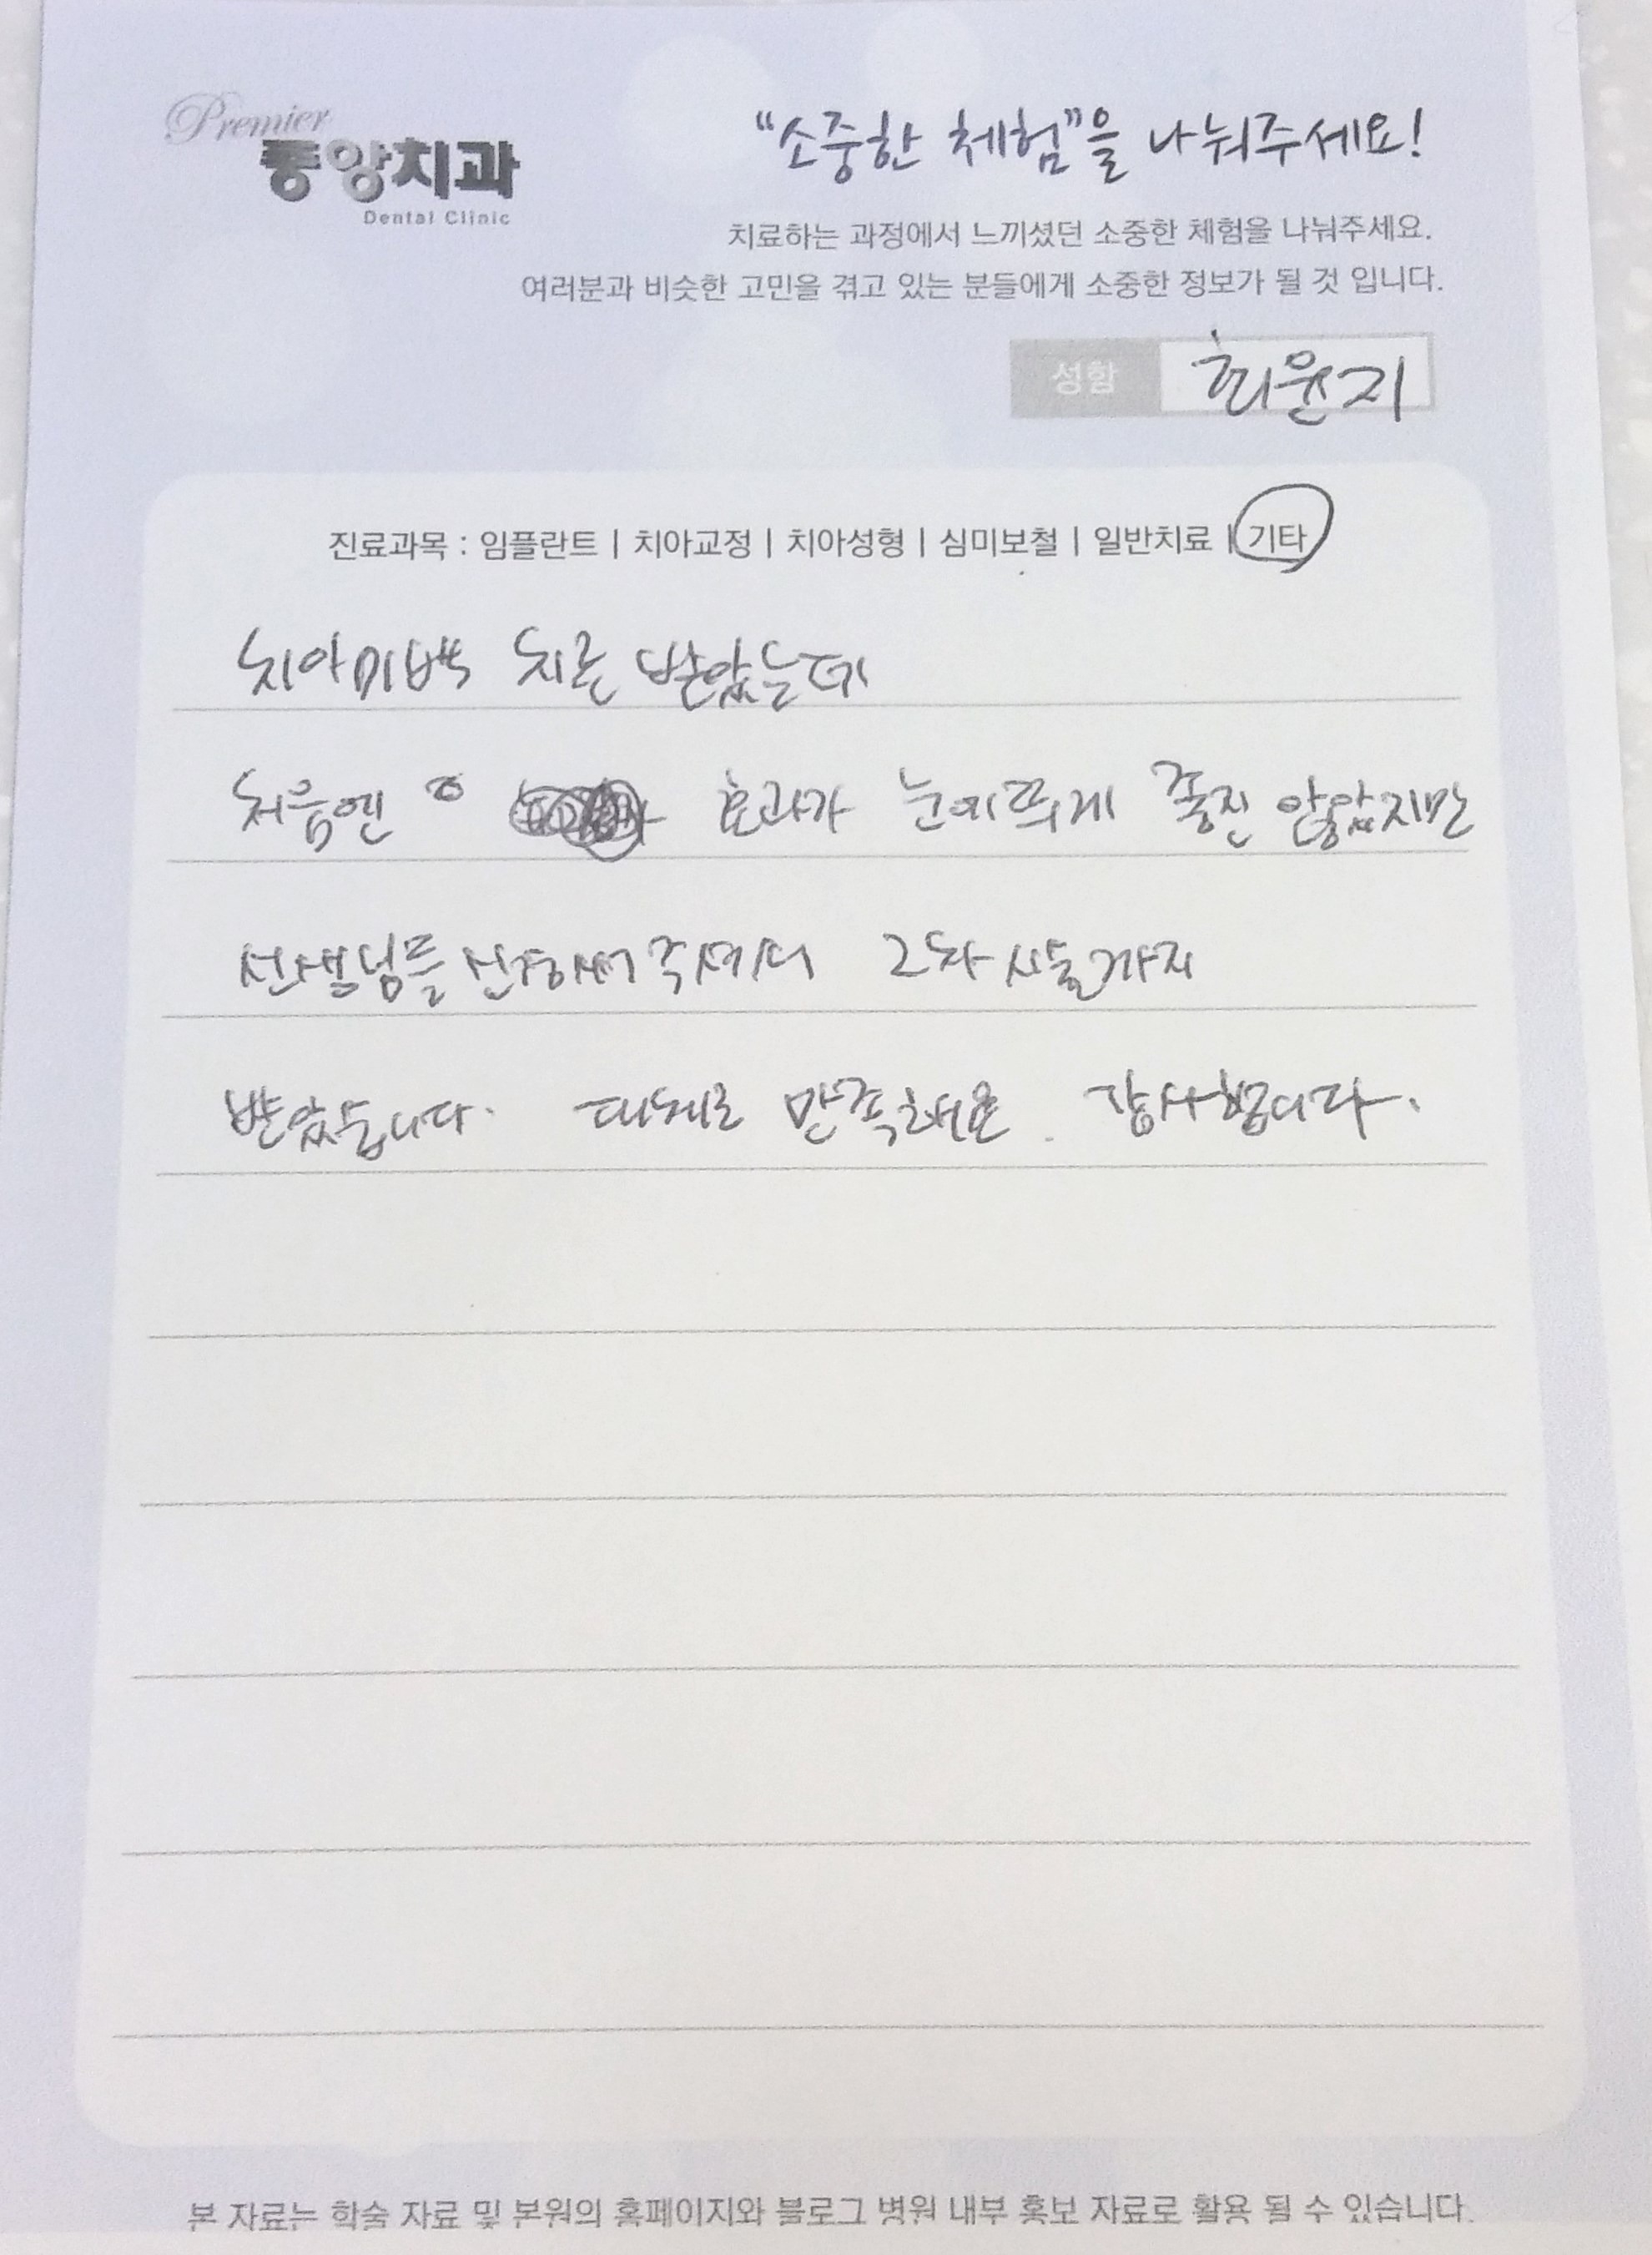 Premier
중앙치과
Dental Clinic
"소중한 체험"을 나눠주세요!
치료하는 과정에서 느끼셨던 소중한 체험을 나눠주세요.
여러분과 비슷한 고민을 겪고 있는 분들에게 소중한 정보가 될 것 입니다.
성함 최윤지
진료과목 : 임플란트 | 치아교정 | 치아성형 | 심미보철 | 일반치료 | 기타
치아미백 치료 받았는데
처음엔 효과가 눈에띄게 좋진 않았지만
선생님들 신경써주셔서 2차 시술까지
받았습니다. 대체로 만족해요. 감사합니다.
본 자료는 학술 자료 및 본원의 홈페이지와 블로그 병원 내부 홍보 자료로 활용 될 수 있습니다.